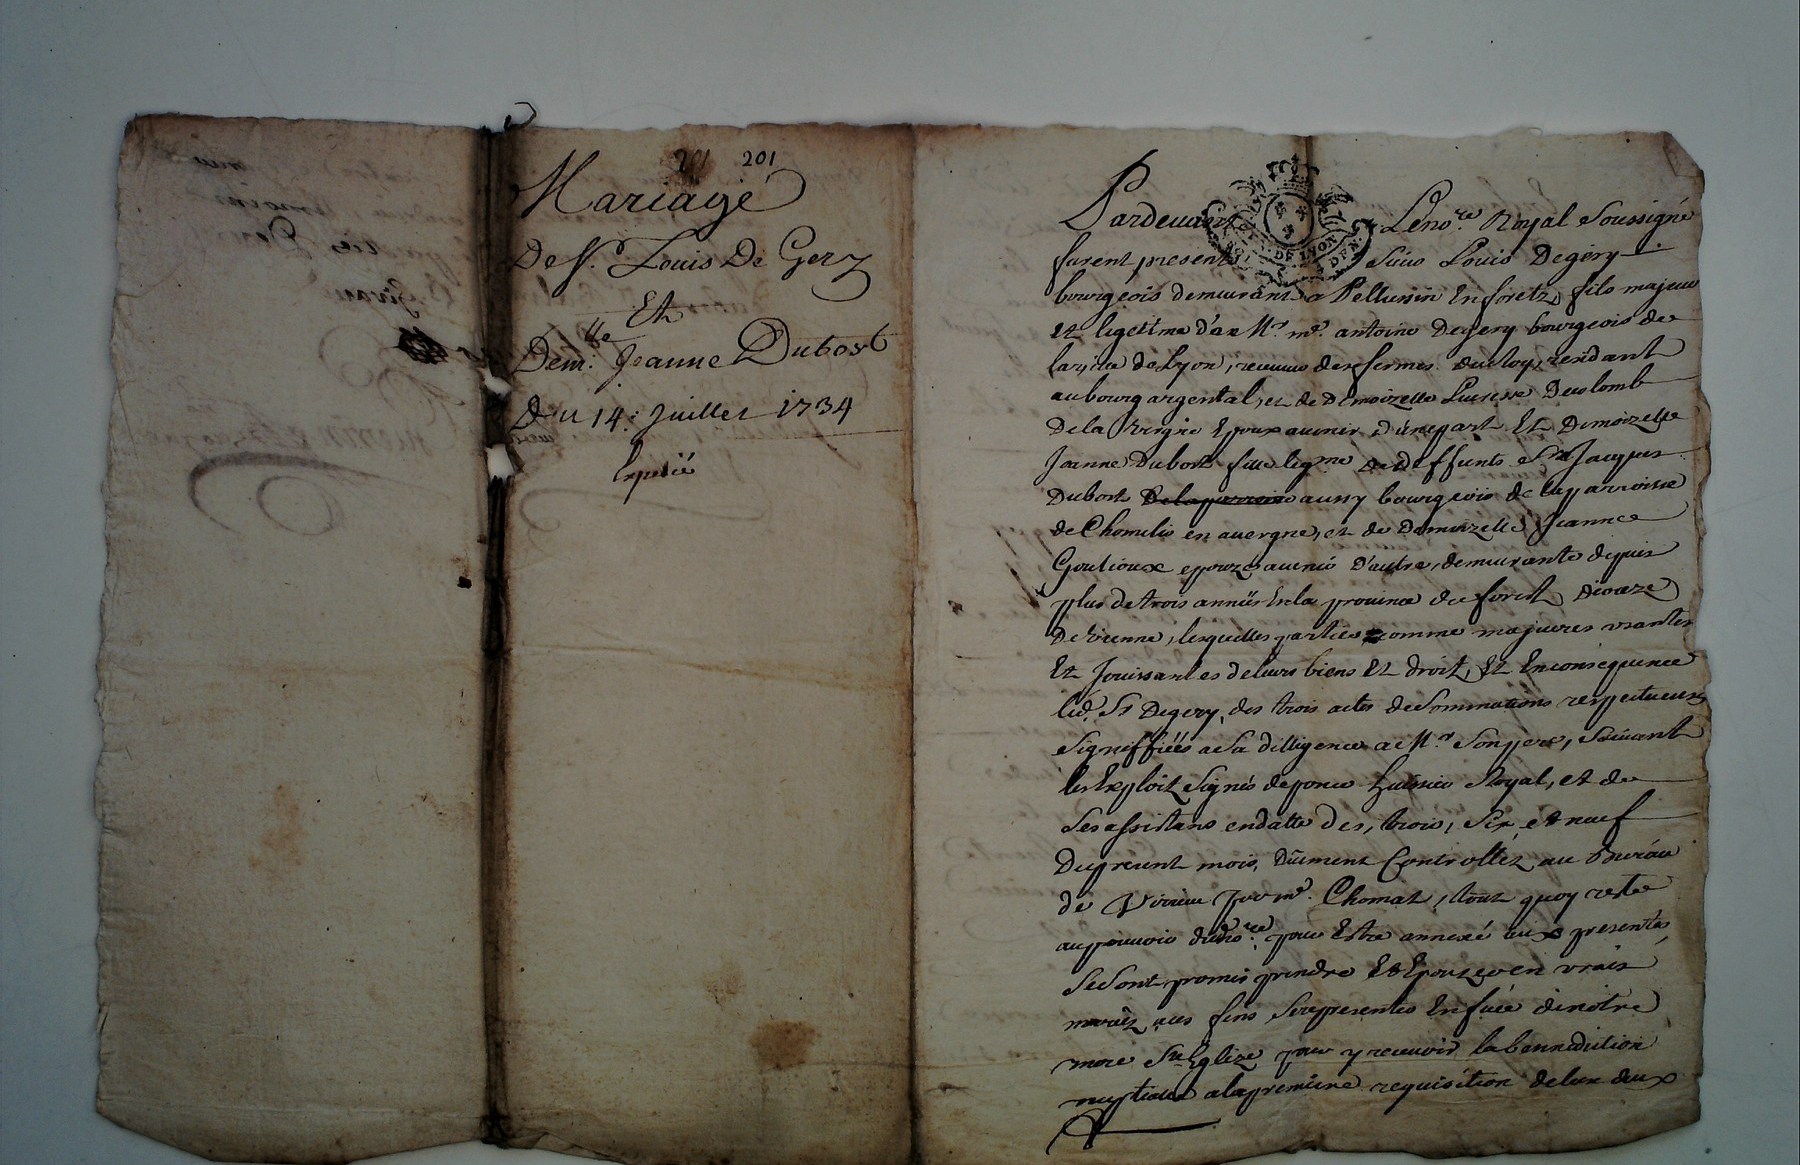 201 201
Mariage
De Sr. Louis De Gery
Et
Demlle. Jeanne Dubost
Du 14: Juillet 1734
Expedié
Pardevant Le nore. Royal Soussigné
furent presents Sieur Louis Degery
bourgeois demeurant a Pellussin En foretz, fils majeur
et legetime d'an Mr. me. antoine Degery bourgeois de
la ville de Lyon, receveur des fermes du Roy, residant
au bourg argental, et de Demoizelle Decolomb
De la Vergne Epoux avenir d'une part Et Demoizelle
Jeanne Dubost fille legme de deffunts Sr Jacques
Dubost aussy bourgeois de la parroisse
de Chomelis en auvergne, et de Demoizelle Jeanne
Goulioux epouze avenir D'autre, demeurante depuis
plus de trois années En la province de forest Dioceze
De Vienne, lesquelles parties comme majeures usantes
Et Jouissantes de leurs biens Et droit, Et En conséquence
led. Sr Degery, des trois actes de Sommations respectueuses
Signiffiées a Sa dilligence a Mr. Son pere, Suivant
les Exploit Signés deponce huissier Royal, et de
Ses assistans en datte des, trois, Six, et neuf
Du present mois, Düment Controllez au Bureau
de Virieu par me. Chomat, tout quoy reste
au pouvoir dud. nore. pour Estre annexé aux presentes
Se Sont promis prendre Et Epouzer en vrais
mariez, aux fins Se representer En face de notre
mere Ste Eglize pour y recevoir la benediction
nuptialle a la premiere requisition de l'un deux